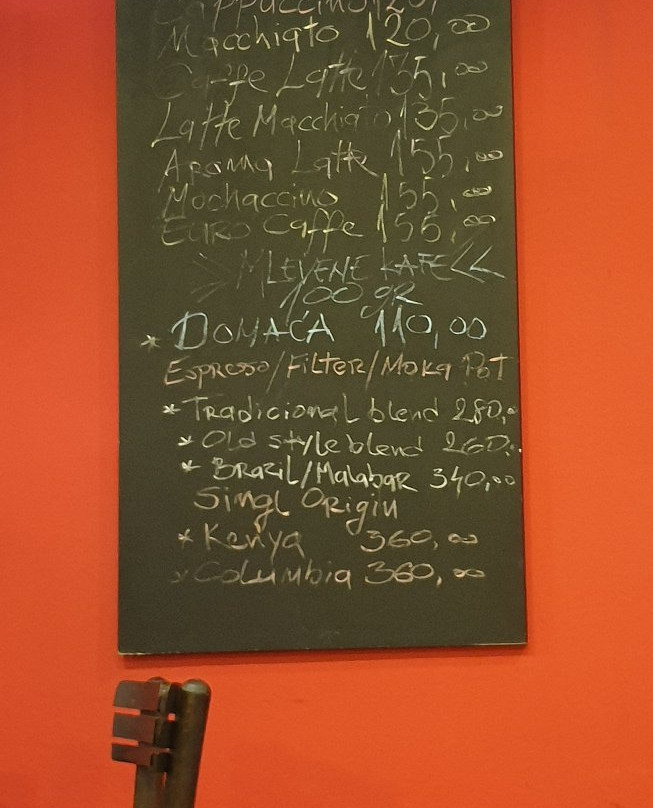 Cappuccino 120,
Macchiato 120,00
Caffe Latte 135,00
Latte Macchiato 135,00
Aroma Latte 155,00
Mochaccino 155,00
EURO Caffe 155,00
>> MLEVENE KAFE <<
100 gR
* DOMAĆA 110,00
Espresso/Filter/Moka Pot
* Tradicional blend 280,00
* Old style blend 260,00
* Brazil/Malabar 340,00
Singl Origin
* Kenya 360,00
* Columbia 360,00